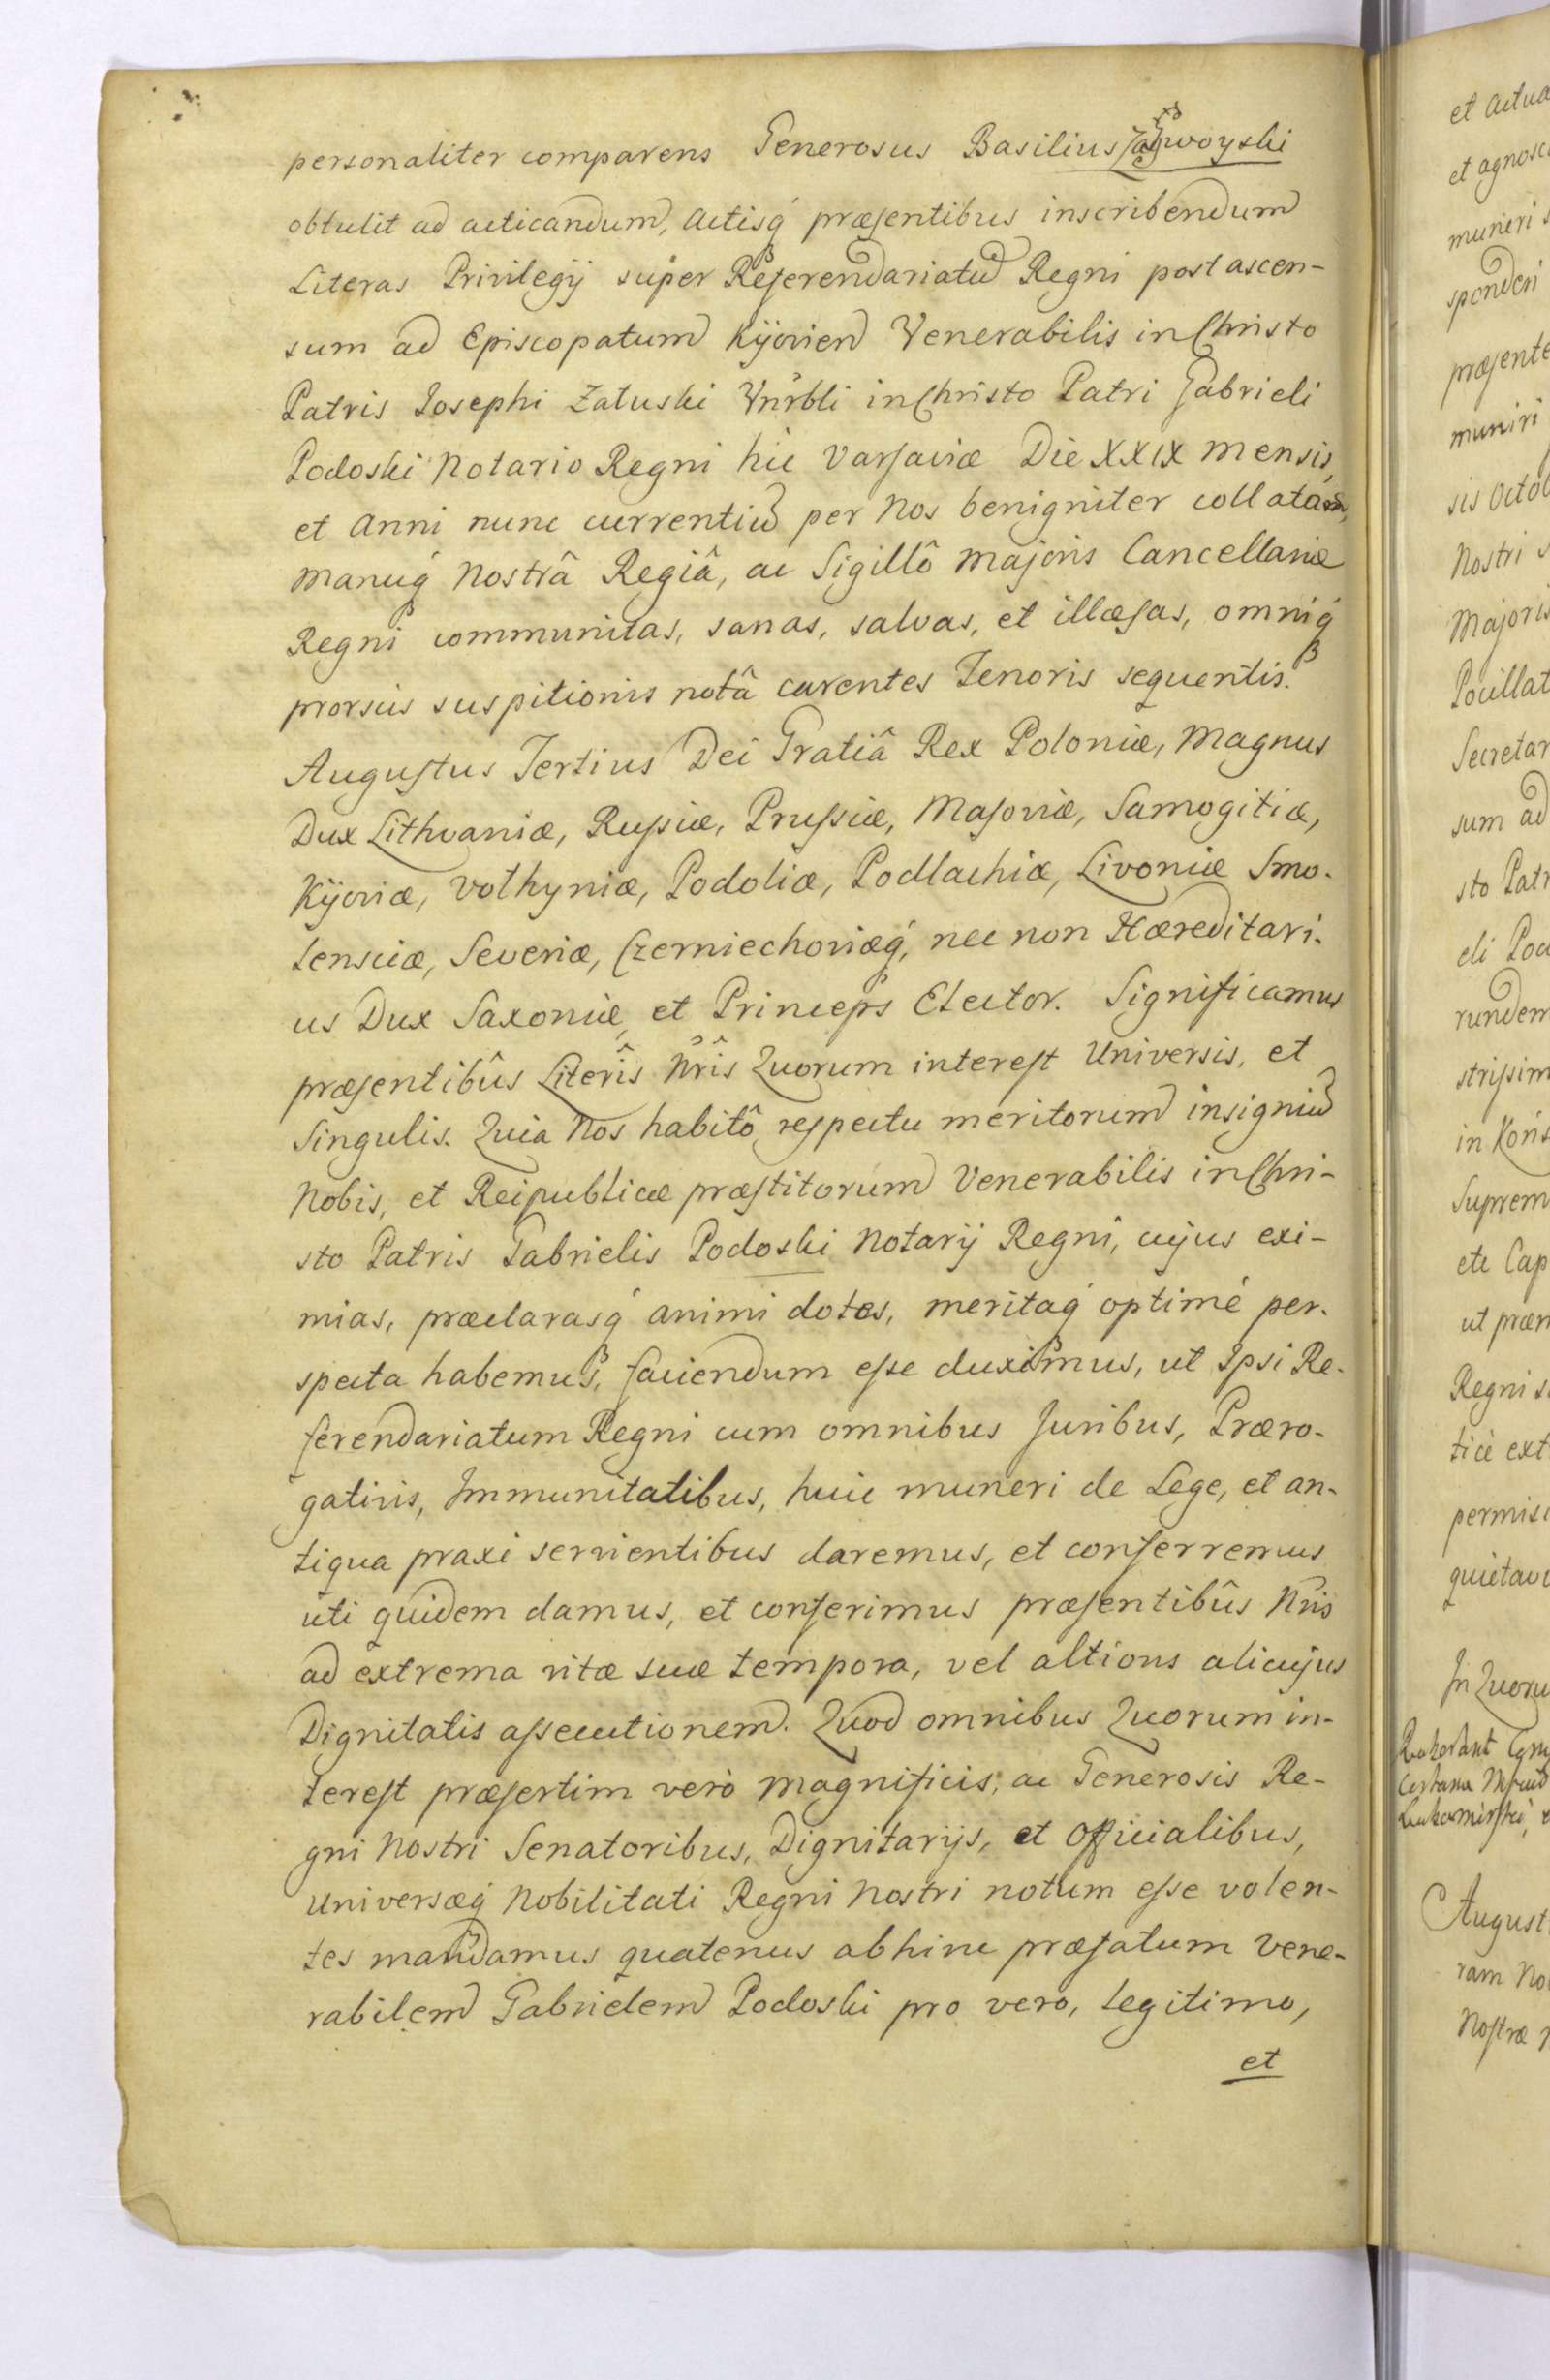 personaliter comparens Generosus Basilius
obtulit ad acticandum, Actisq́ præsentibus inscribendum
Literas Privilegij super Referendariatum Regni post ascen-
sum ad Episcopatum Kijovien Venerabilis in Christo
Patris Josephi Załuski Vnrbli in Christo Patri Gabrieli
Podoski Notario Regni hic Varsaviæ Die XXIX Mensis,
et Anni nunc currentium per Nos benigniter collatam,
Manuq́ Nostrâ Regiâ, ac Sigillô Majoris Cancellariæ
Regni communitas, sanas, salvas, et illæsas, omniq́
prorsus suspitionis notâ carentes Tenoris sequentis.
Augustus Tertius Dei Gratiâ Rex Poloniæ, Magnus
Dux Lithvaniæ, Russiæ, Prussiæ, Masoviæ, Samogitiæ,
Kijoviæ, Volhyniæ, Podoliæ, Podlachiæ, Livoniæ Smo-
lensciæ, Severiæ, Czerniechoviæq́, nec non Hæreditari-
us Dux Saxoniæ, et Princeps Elector. Significamus
præsentibûs Literîs Nrîs Quorum interest Universis, et
Singulis. Quia Nos habitô respectu meritorum insignium
Nobis, et Reipublicæ præstitorum Venerabilis in Chri-
sto Patris Gabrielis Podoski Notarij Regni, cujus exi-
mias, præclarasq́ animi dotes, meritaq́ optimé per-
specta habemus, faciendum esse duximus, ut Ipsi Re-
ferendariatum Regni cum omnibus Juribus, Præro-
gativis, Immunitatibus, huic muneri de Lege, et an-
tiqua praxi servientibus daremus, et conferremus
uti quidem damus, et conferimus præsentibûs Nris
ad extrema vitæ suæ tempora, vel altioris alicujus
Dignitatis assecutionem. Quod omnibus Quorum in-
terest præsertim verò Magnificis, ac Generosis Re-
gni Nostri Senatoribus, Dignitarijs, et Officialibus,
Universæq́ Nobilitati Regni Nostri notum esse volen-
tes mandamus quatenus abhinc præfatum Vene-
rabilem Gabrielem Podoski pro vero, legitimo,
et